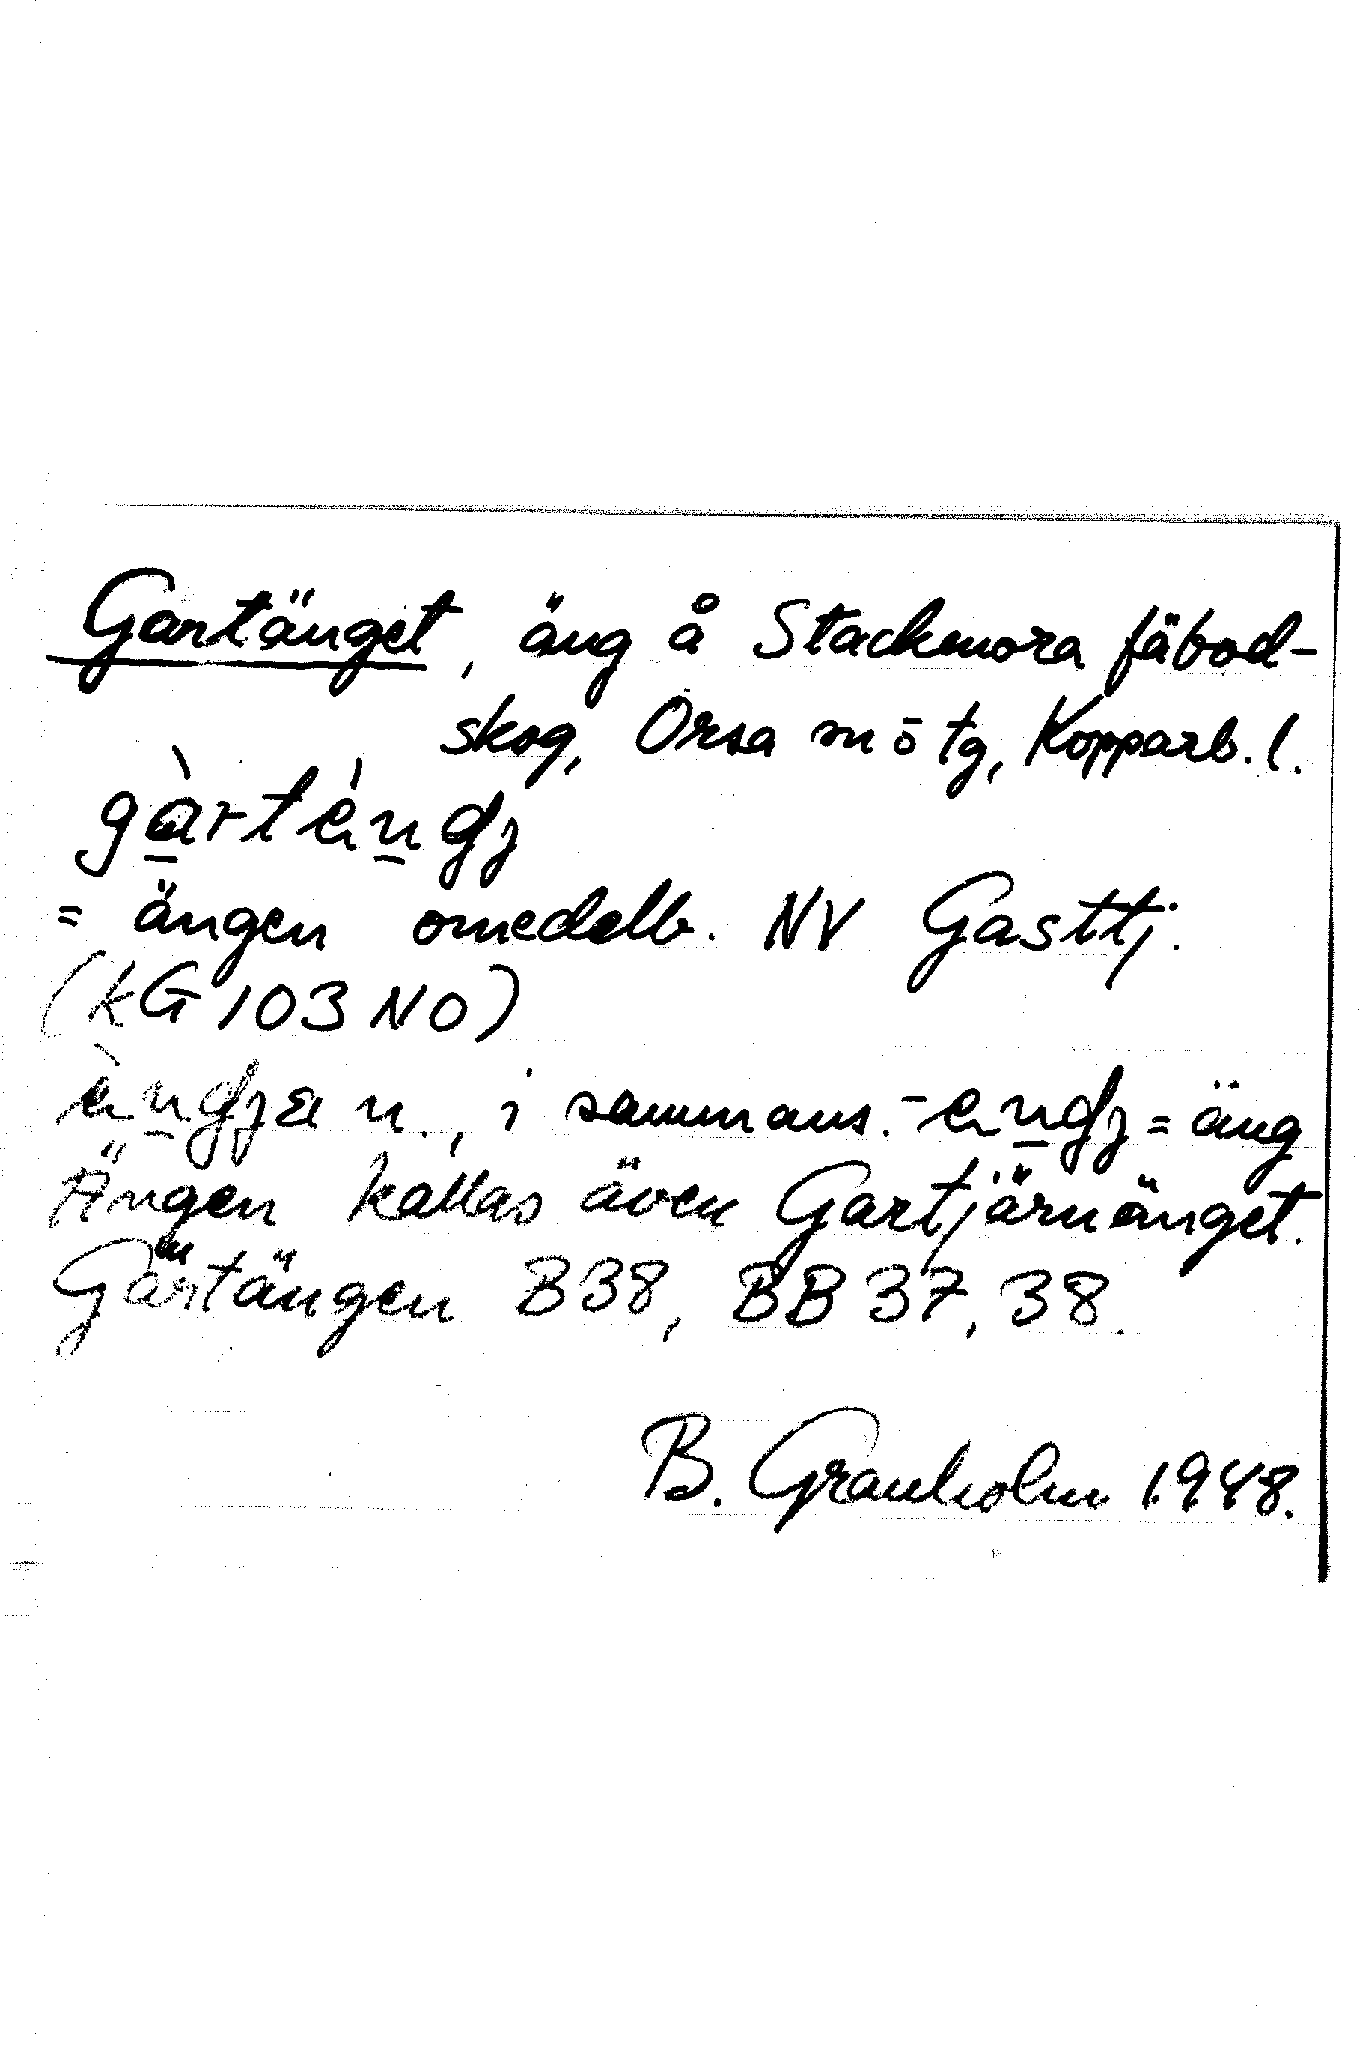 Gartänget, äng å Stackmora fäbod-
skog, Orsa sn ö tg, Kopparb. l.
gàrtèndj
= ängen omedelb. NV Gasttj.
(kG 103 NO)
èndjan, i sammans. -endj = äng
Ängen kallas även Gartjärnänget.
Gärtängen B38, BB 37, 38.
B. Granholm 1948.